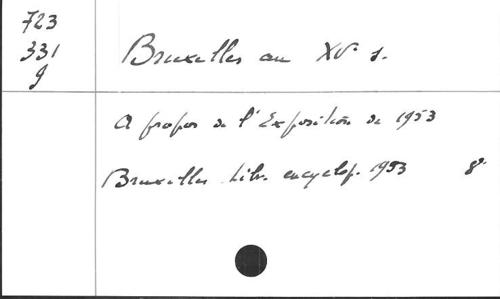 723
331
g
Bruxelles au XVe s.
A propos de l'Exposition de 1953
Bruxelles. Libr. encyclop. 1953 8°